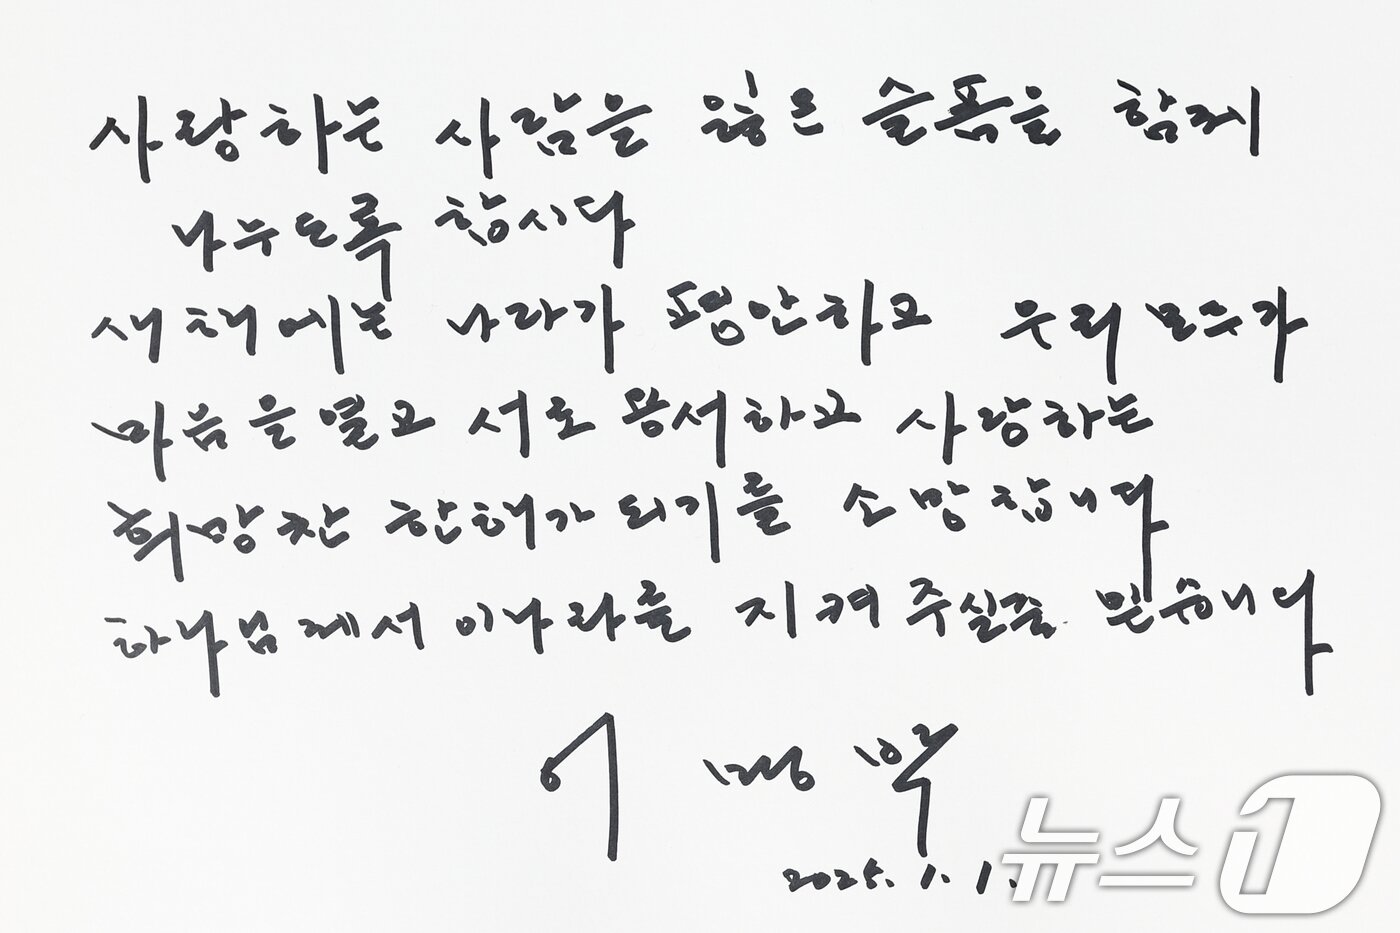 사랑하는 사람을 잃은 슬픔을 함께
나누도록 합시다
새해에는 나라가 평안하고 우리 모두가
마음을 열고 서로 용서하고 사랑하는
희망찬 한해가 되기를 소망합니다
하나님께서 이 나라를 지켜 주실줄 믿습니다
이명박
2025. 1. 1.
뉴스1